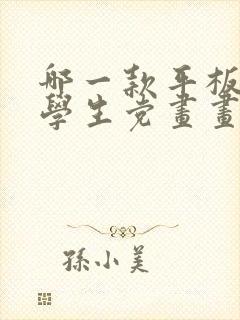 哪一款平板
學生党畫畫
孫小美